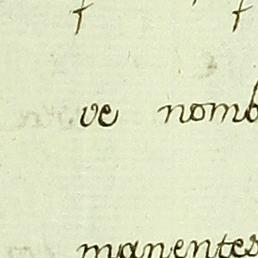 ve nomb
manentes